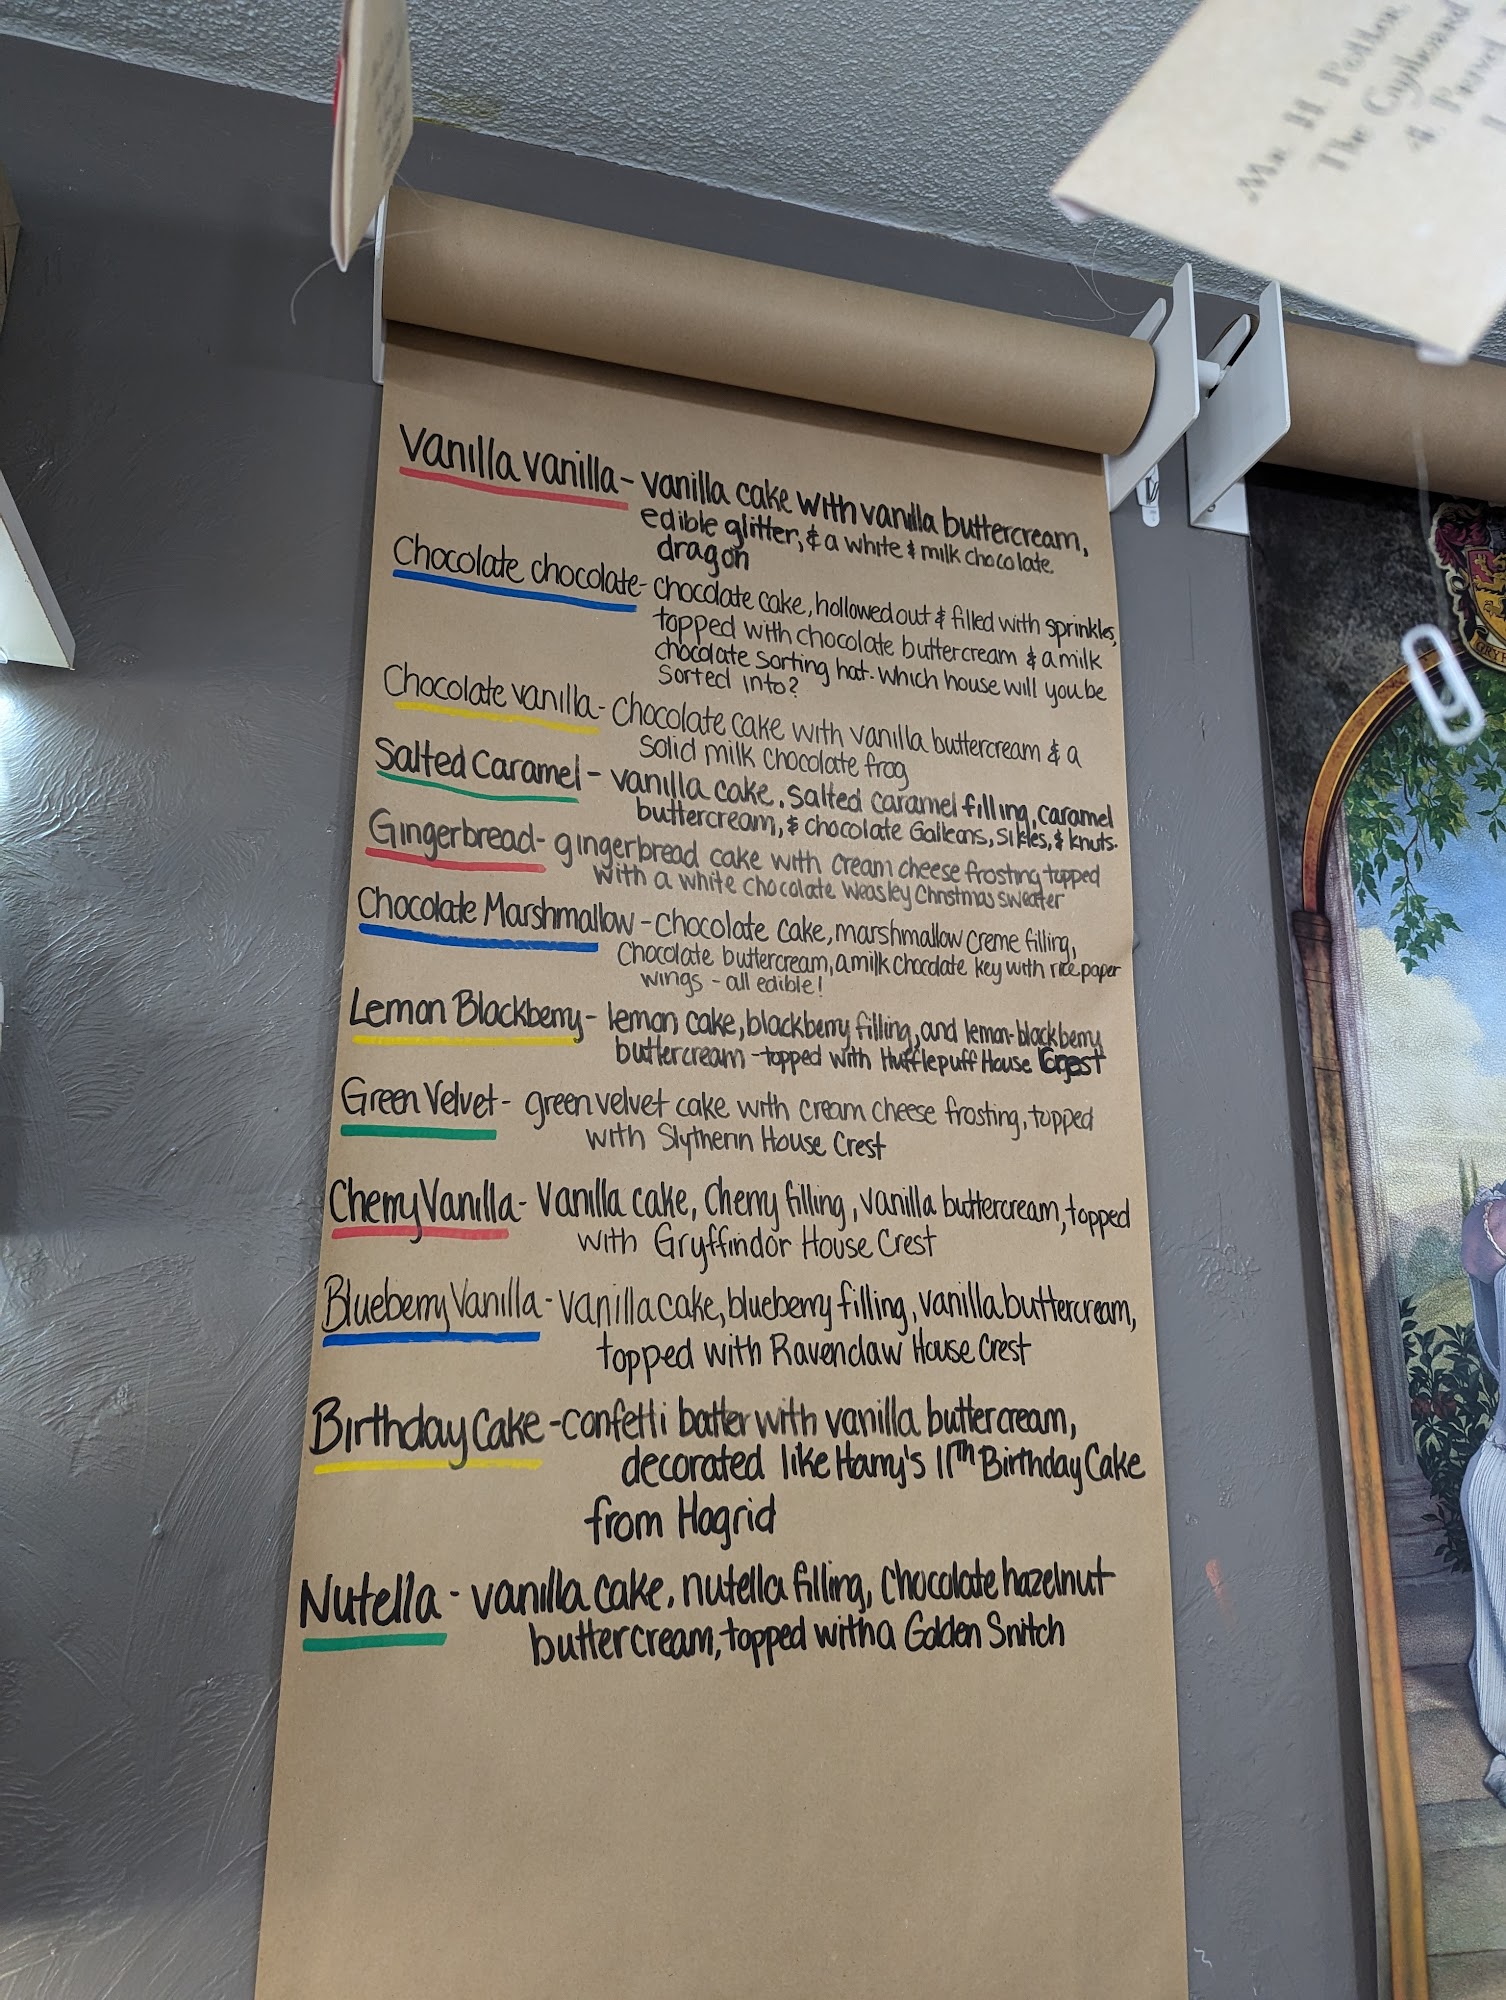 Mr. H. Potter,
The Cupboard
4, Privet
Vanilla vanilla - vanilla cake with vanilla buttercream,
edible glitter, & a white & milk chocolate
dragon
Chocolate chocolate - chocolate cake, hollowed out & filled with sprinkles,
topped with chocolate buttercream & a milk
chocolate sorting hat. which house will you be
sorted into?
Chocolate vanilla - chocolate cake with vanilla buttercream & a
solid milk chocolate frog
Salted Caramel - vanilla cake, salted caramel filling, caramel
buttercream, & chocolate Galleans, Sikles, & knuts.
Gingerbread - gingerbread cake with cream cheese frosting topped
with a white chocolate Weasley Christmas sweater
Chocolate Marshmallow - chocolate cake, marshmallow creme filling,
Chocolate buttercream, a milk chocolate key with rice paper
wings - all edible!
Lemon Blackberry - lemon cake, blackberry filling, and lemon-blackberry
buttercream - topped with Hufflepuff House Crest
Green Velvet - green velvet cake with cream cheese frosting, topped
with Slytherin House Crest
Cherry Vanilla - Vanilla cake, Cherry filling, vanilla buttercream, topped
with Gryffindor House Crest
Blueberry Vanilla - vanilla cake, blueberry filling, vanilla buttercream,
topped with Ravenclaw House Crest
Birthday Cake - confetti batter with vanilla buttercream,
decorated like Harry's 11th Birthday Cake
from Hagrid
Nutella - vanilla cake, nutella filling, chocolate hazelnut
buttercream, topped with a Golden Snitch